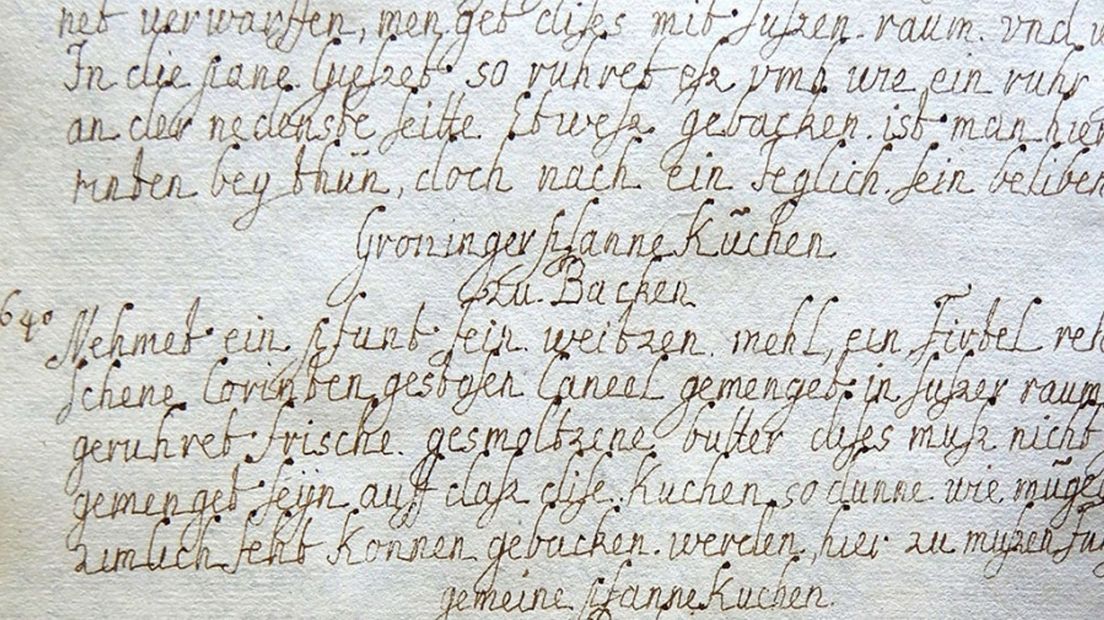 net verwarffen, men get dises mit suszen raum vnd
In die pane gieszet so ruhret esz vmb wie ein ruhr
an der nedenste seitte Etwesz gebacken ist man hier
rinten bey thün, doch nach ein jeglich sein beliben
Groninger pfanne Kũchen
zu Backen
640 Nehmet ein pfunt fein weitzen mehl, ein Firtel
schene Corinten gestosen Caneel gemenget in suszer raum
geruhret frische gesmoltzene butter dises musz nicht
gemenget seÿn auff dasz dise Kuchen so dunne wie
zimlich seht Konnen gebacken werden, hier zu muszen
gemeine pfanne Kuchen